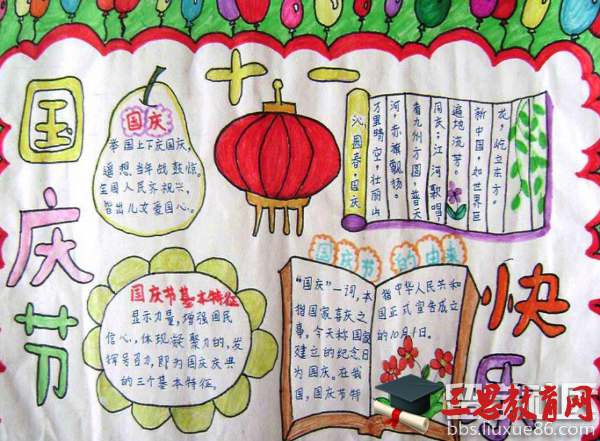 国庆节
十一
快乐
国庆
举国上下庆国庆,
遥想当年战鼓惊。
全国人民齐祝兴,
皆出儿女爱国心。
沁园春·国庆
万里晴空,壮丽山
河,赤旗飘扬。
看九州方圆,普天
同庆;江河歌唱,
遍地流芳。
新中国,如世界巨
龙,屹立东方。
国庆节基本特征
显示力量,增强国民
信心,体现凝聚力的,发
挥号召力,即为国庆庆典
的三个基本特征。
国庆节的由来
“国庆”一词,本
指国家喜庆之
事,今天称国家
建立的纪念日
为国庆。在我
国,国庆节特
指中华人民共和
国正式宣告成立
的10月1日。
三思教育网
bbs.liuxue86.com